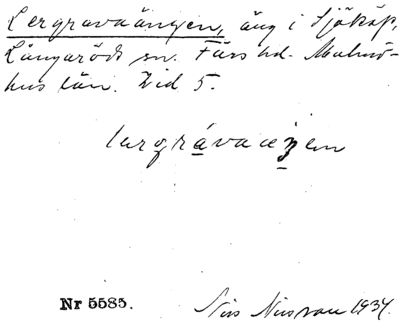 Lergravaängen, äng i Sjököp,
Långaröds sn. Färs hd. Malmö-
hus län. Zid 5.
lærgrávaæŋen
Nr 5585.
Nils Nilsson 1934.